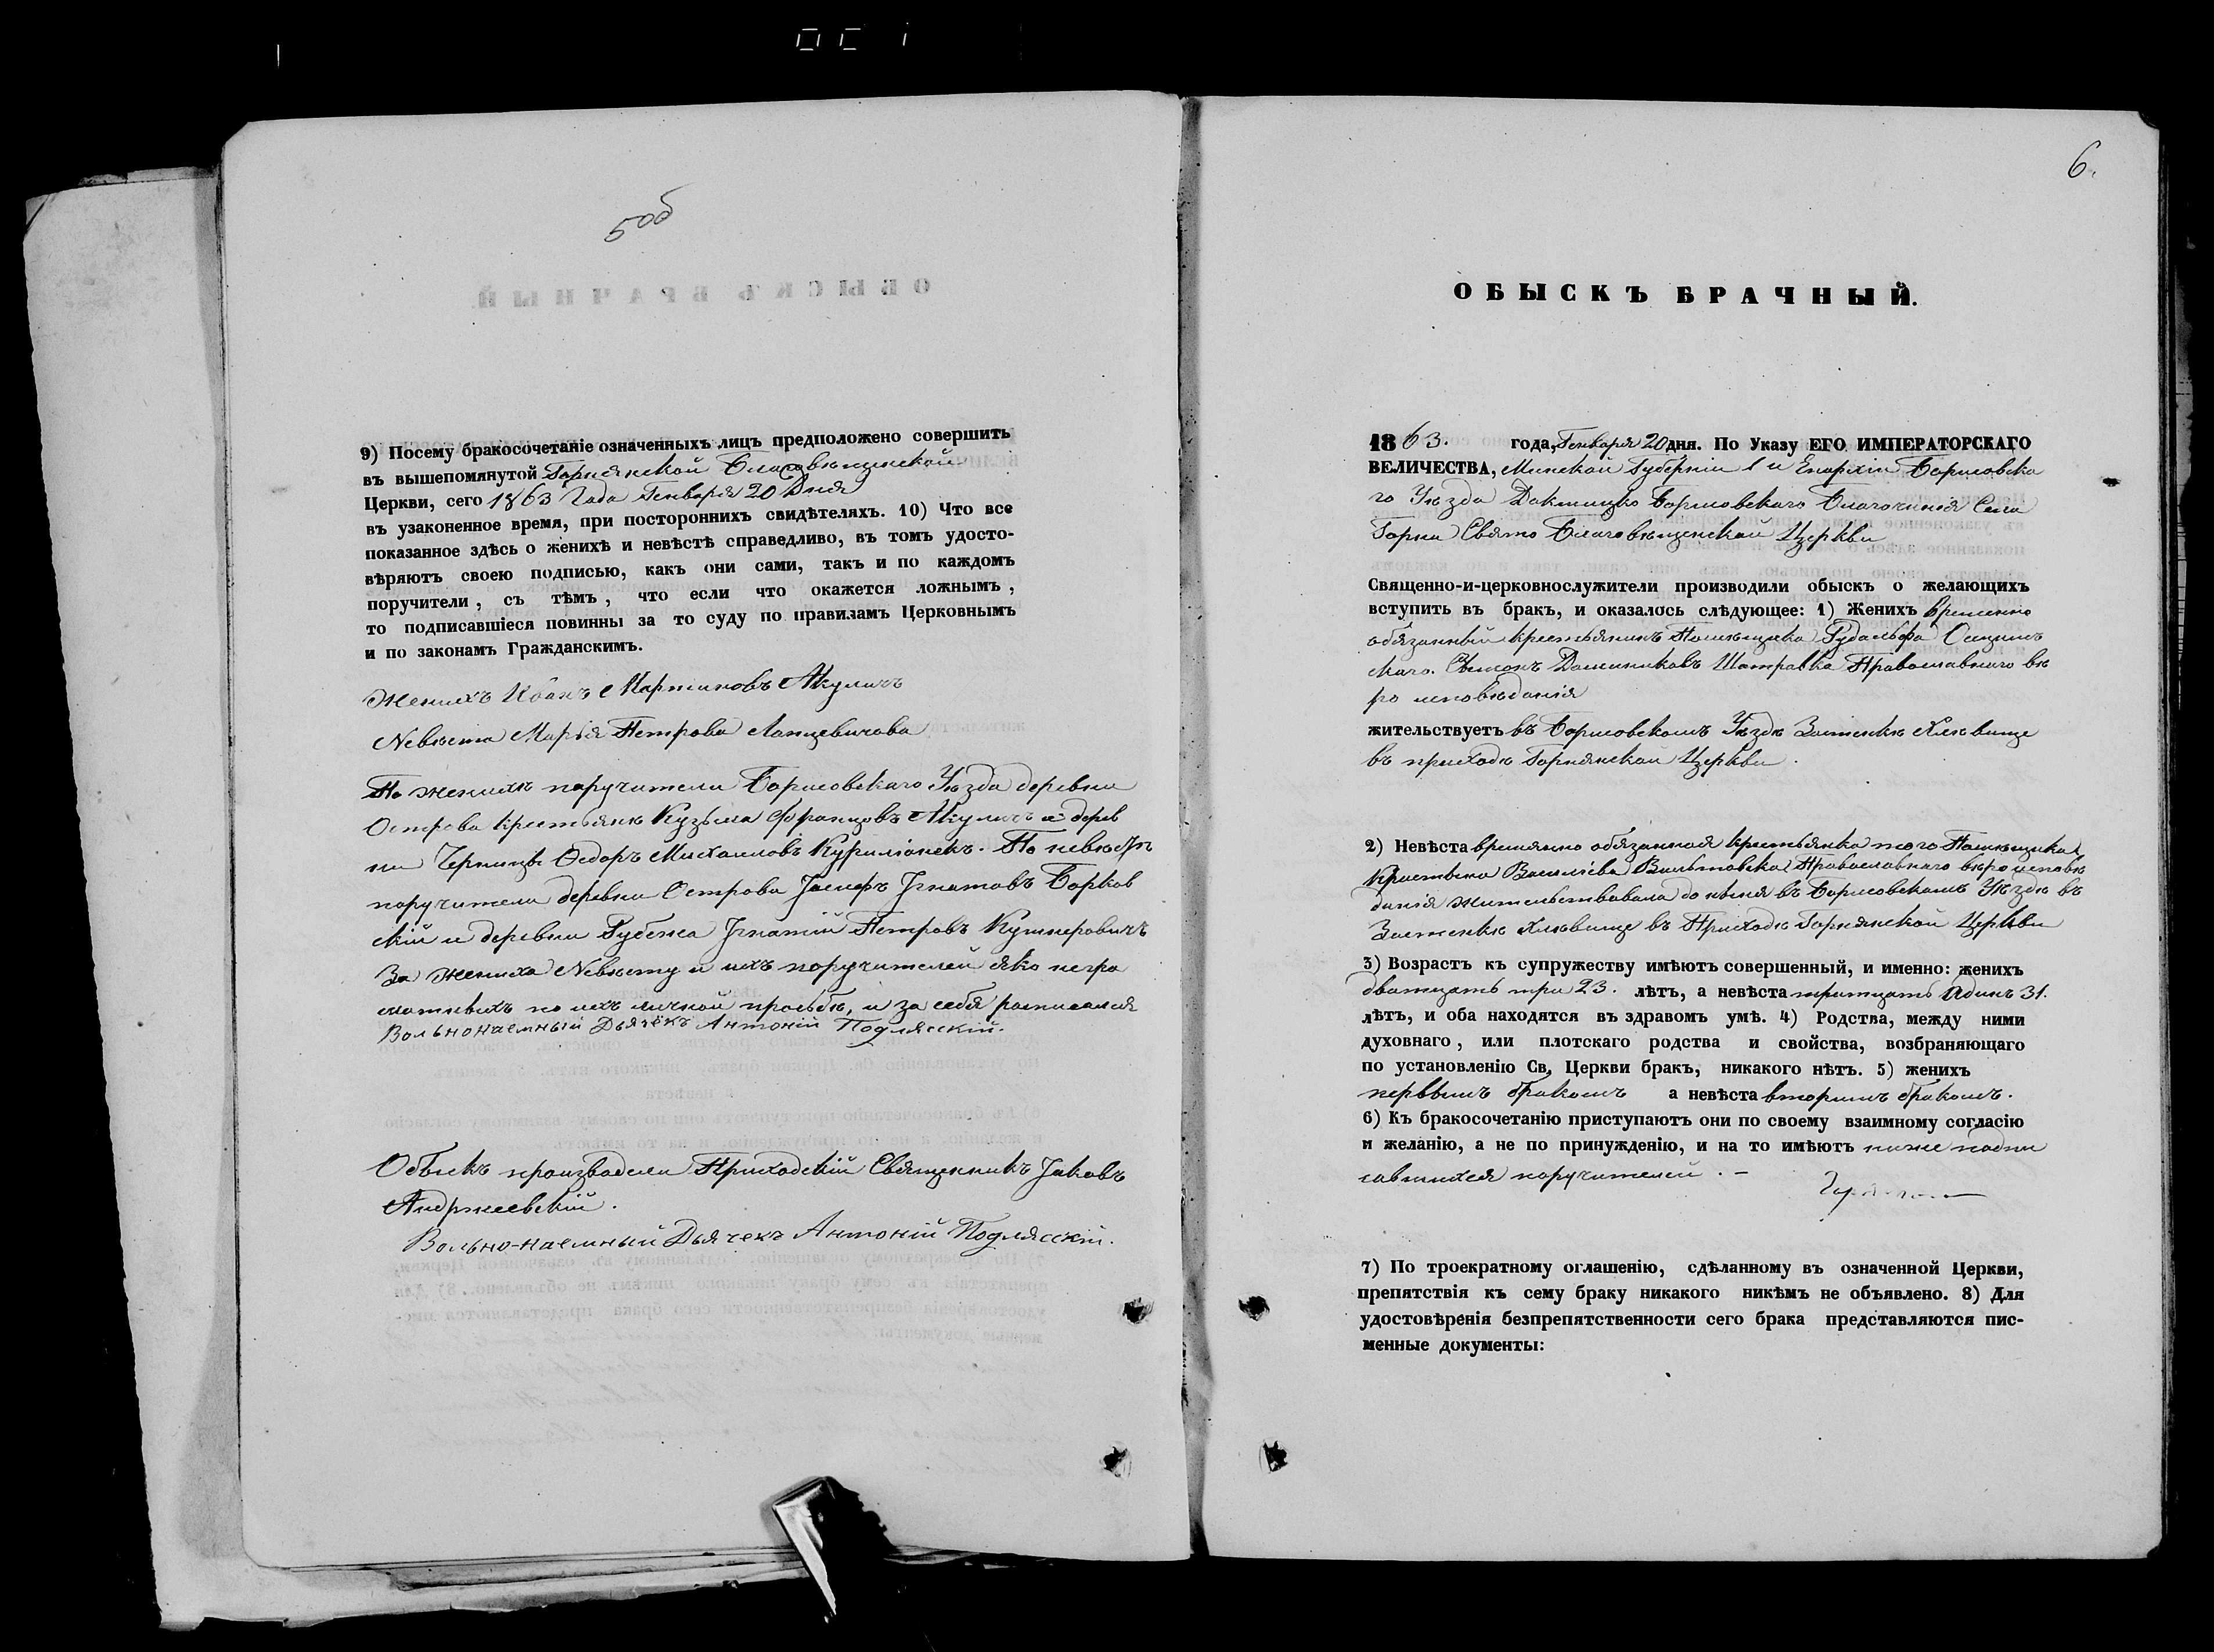 5 об
9) Посему бракосочетаніе означенныхъ лицъ предположено совершить
въ вышепомянутой Горнянской Благовѣщенской
Церкви, сего 1863 Года Генваря 20 Дня
въ узаконенное время, при постороннихъ свидѣтеляхъ. 10) Что все
показанное здѣсь о женихѣ и невѣстѣ справедливо, въ томъ удосто-
вѣряютъ своею подписью, какъ они сами, такъ и по каждомъ
поручители, съ тѣмъ, что если что окажется ложнымъ,
то подписавшіеся повинны за то суду по правиламъ Церковнымъ
и по законамъ Гражданскимъ.
Женихъ Иванъ Мартиновъ Акуличъ
Невѣста Марья Петрова Лапцевичова
По женихѣ поручители Борисовскаго Уѣзда деревни
Острова крестьянѣ Кузьма Францовъ Акуличъ и дерев
ни Черницъ Ѳедоръ Михаиловъ Куриліонекъ. По невѣстѣ
поручители деревни Острова Јосифъ Јгнатовъ Борков
скій и деревни Рубежа Јгнатій Петровъ Кушнеровичъ
За жениха Невѣсту и ихъ поручителей яко негра
мотныхъ по ихъ личной просьбѣ, и за себя росписался
Вольнонаемный Дьячёкъ Антоній Подлясскій.
Обыскъ производили Приходскій Священникъ Јаковъ
Андржеевскій.
Вольно-наемный Дьячекъ Антоній Подлясскій.
6.
ОБЫСКЪ БРАЧНЫЙ.
1863. года, Генваря 20 дня. По Указу ЕГО ИМПЕРАТОРСКАГО
ВЕЛИЧЕСТВА, Минской Губерніи и Епархіи Борисовска
го Уѣзда Докшицко Борисовскаго Благочинія Села
Горни Свято Благовѣщенской Церкви
Священно-и-церковнослужители производили обыскъ о желающихъ
вступить въ бракъ, и оказалось слѣдующее: 1) Женихъ временно
обязанный крестьянинъ Помѣщика Рудольфа
Доминиковъ Шатравка Православнаго вѣ
ро исповѣданія
жительствуетъ въ Борисовскомъ Уѣздѣ Застенкѣ Хлѣвище
въ приходѣ Горнянской Церкви.
2) Невѣста временно обязанная крестьянка того Помѣщика
Васильева Вильтовска Православнаго вѣро исповѣ
данія жительствовала до нынѣ въ Борисовскомъ Уѣздѣ въ
Застенкѣ Хлѣвище въ Приходѣ Горнянской Церкви
3) Возрастъ къ супружеству имѣютъ совершенный, и именно: женихъ
дватцать три 23. лѣтъ, а невѣста тритцать Адинъ 31.
лѣтъ, и оба находятся въ здравомъ умѣ. 4) Родства, между ними
духовнаго, или плотскаго родства и свойства, возбраняющаго
по установленію Св, Церкви бракъ, никакого нѣтъ. 5) женихъ
первымъ бракомъ а невѣста вторимъ бракомъ.
6) Къ бракосочетанію приступаютъ они по своему взаимному согласію
и желанію, а не по принужденію, и на то имѣютъ ниже подпи
савшихся поручителей. —
7) По троекратному оглашенію, сдѣланному въ означенной Церкви,
препятствія къ сему браку никакого никѣмъ не объявлено. 8) Для
удостовѣренія безпрепятственности сего брака представляются пис-
менные документы: